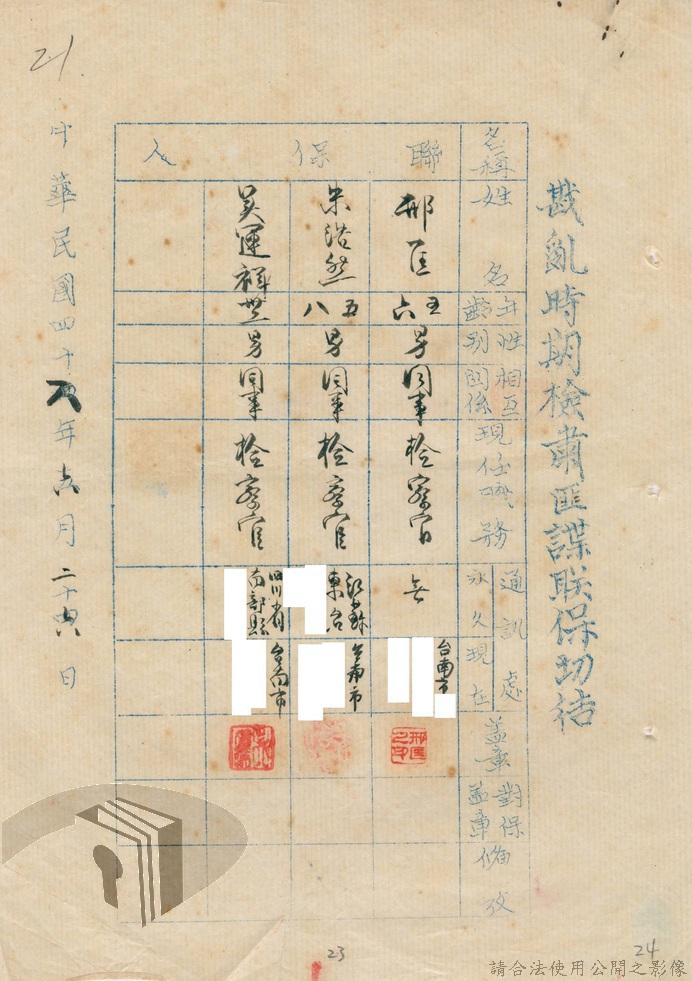 戡亂時期檢肅匪諜联保切結
名稱 姓名 年齡 性别 相互関係 現任職務 通訊處 永久 現在 盖章 對保盖章 備攷
聯保人
邢匡 五六 男 同事 检察官 無 台南市
朱浩然 五八 男 同事 检察官 江蘇東台 台南市
吴運祥 男 同事 检察官 四川省南部縣 台南市
中華民國四十八年 月二十六日
21.
23
24
請合法使用公開之影像